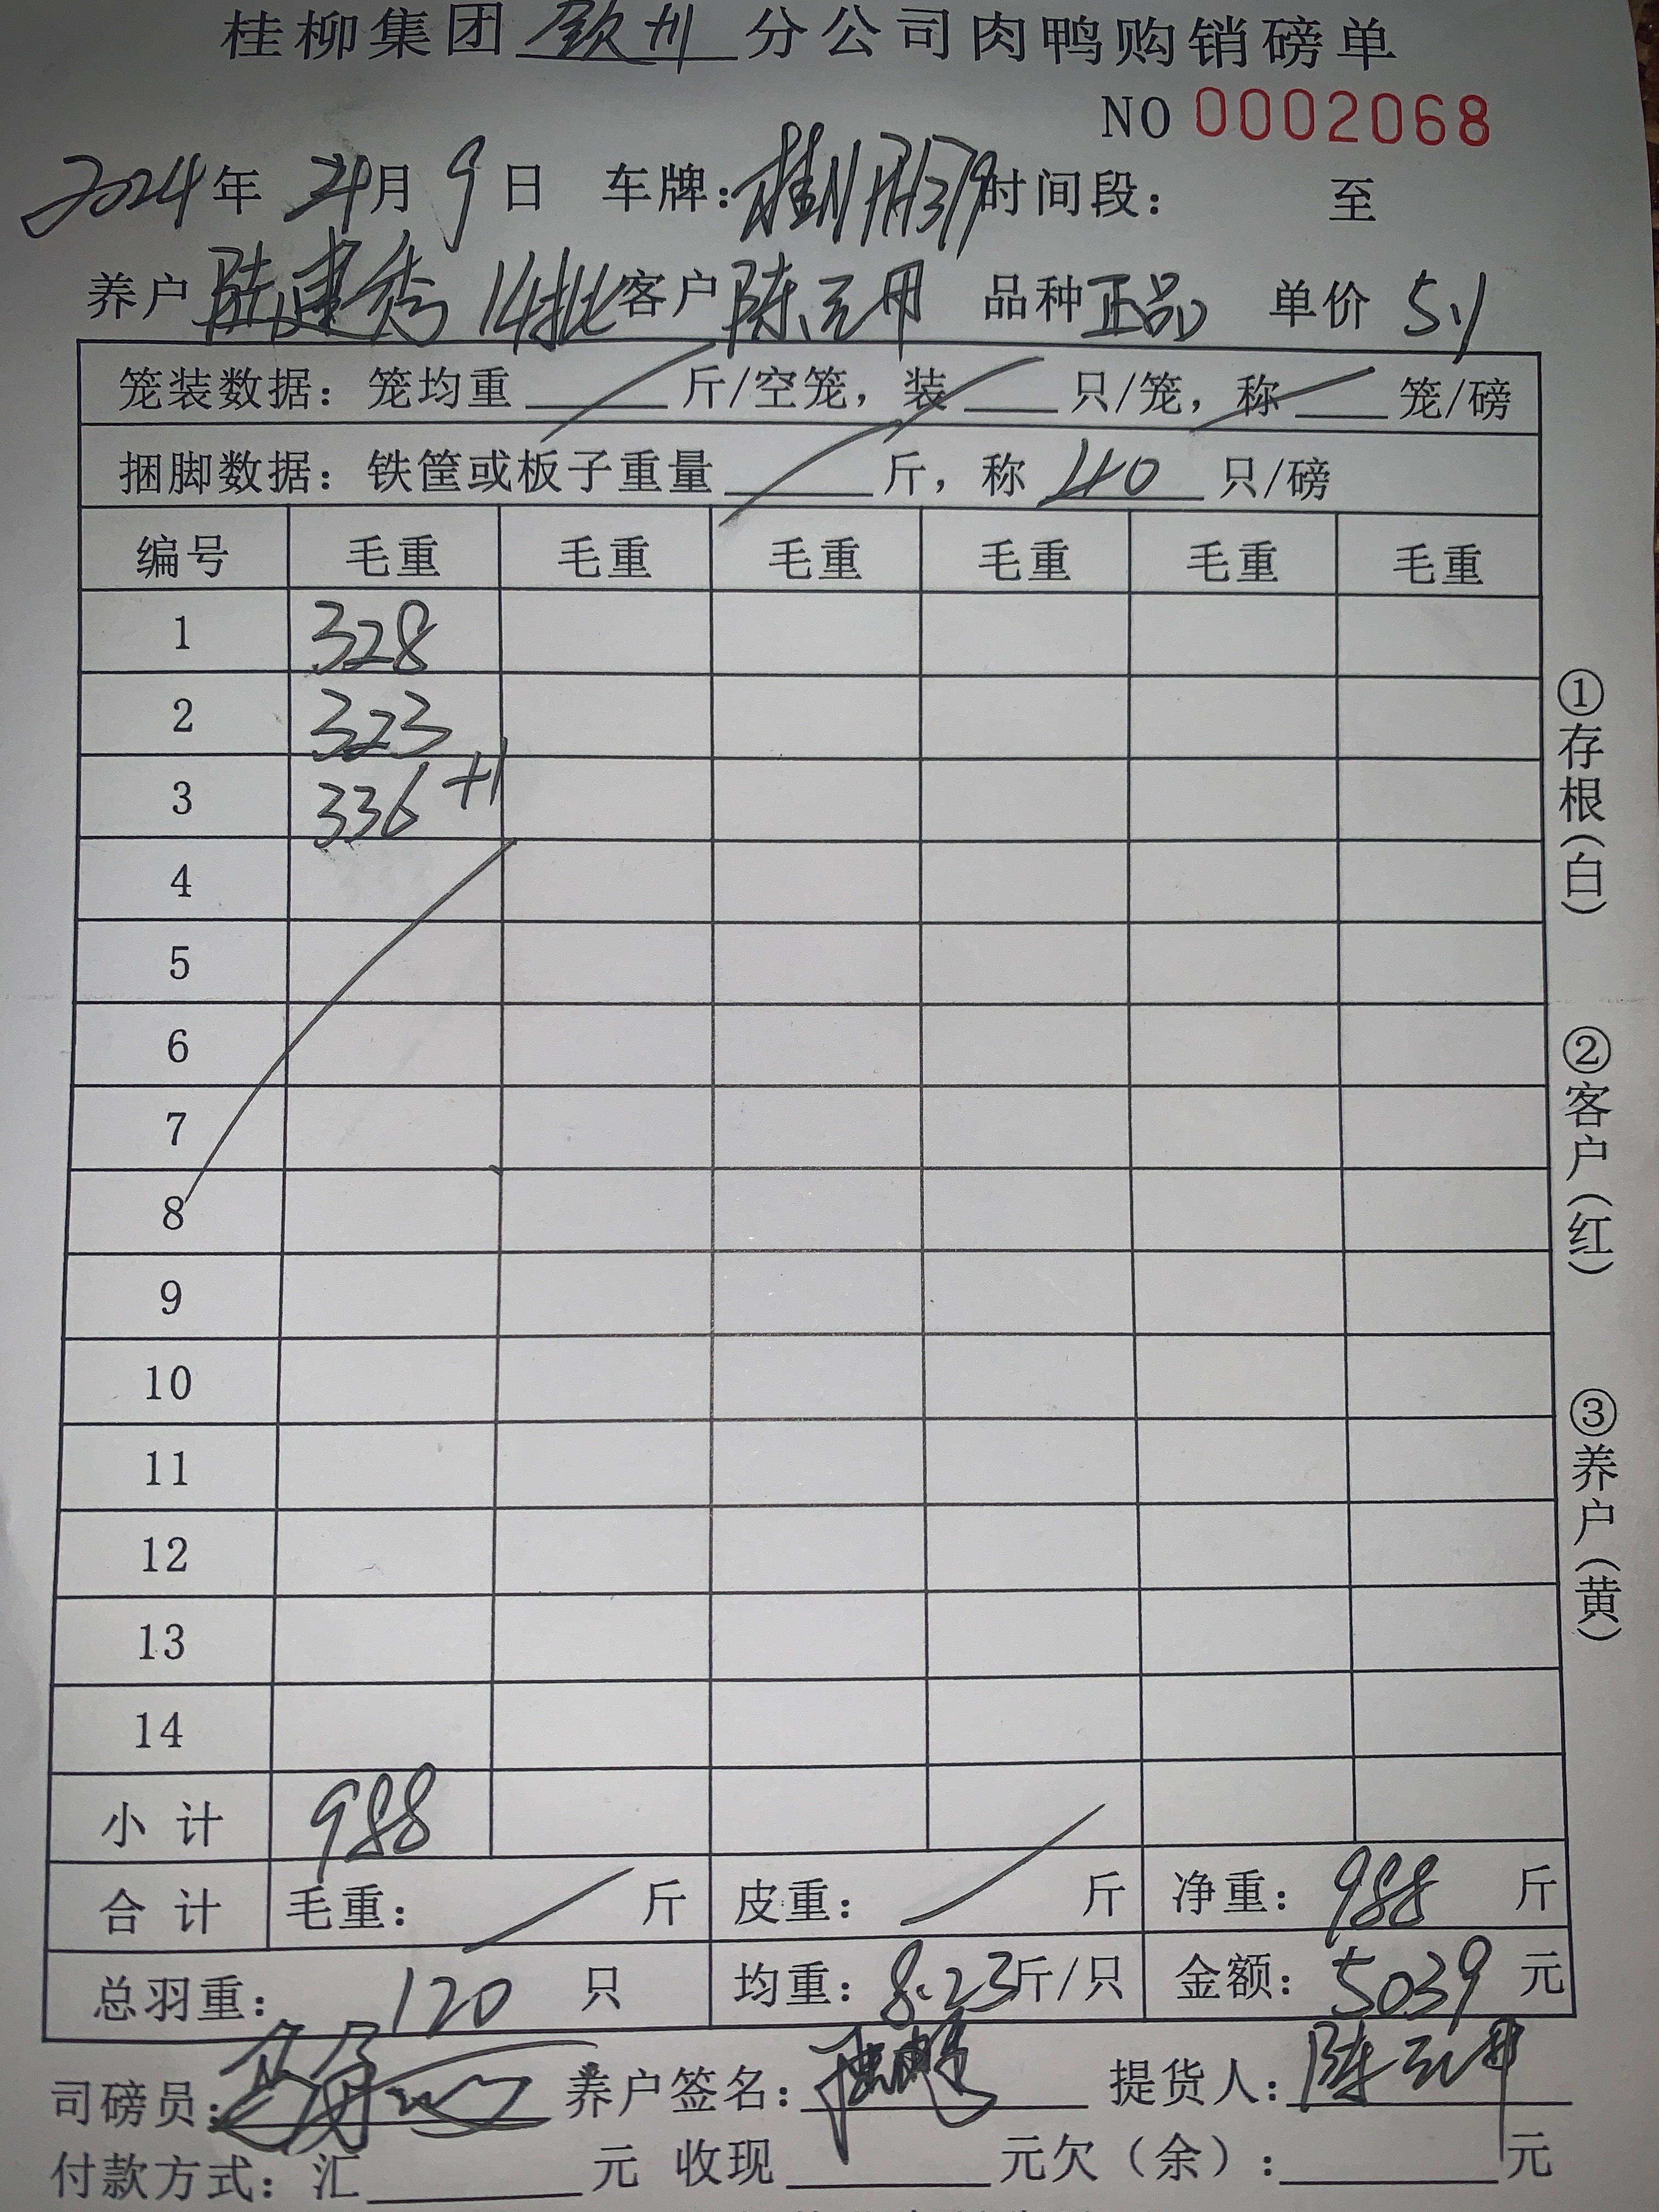 桂柳集团 钦州 分公司肉鸭购销磅单
NO 0002068
2024年 4月 9日 车牌: 时间段: 至
养户 陆建秀 14批 客户 陈云丹 品种 正品 单价 5.1
笼装数据: 笼均重 斤/空笼, 装 只/笼, 称 笼/磅
捆脚数据: 铁筐或板子重量 斤, 称 40 只/磅
编号 毛重 毛重 毛重 毛重 毛重 毛重
1 328
2 323
3 336 +1
4
5
6
7
8
9
10
11
12
13
14
小计 988
合计 毛重: 斤 皮重: 斤 净重: 988 斤
总羽重: 120 只 均重: 8.23斤/只 金额: 5039 元
司磅员: 养户签名: 提货人: 陈云丹
付款方式: 汇 元 收现 元欠(余): 元
①存根(白)
②客户(红)
③养户(黄)